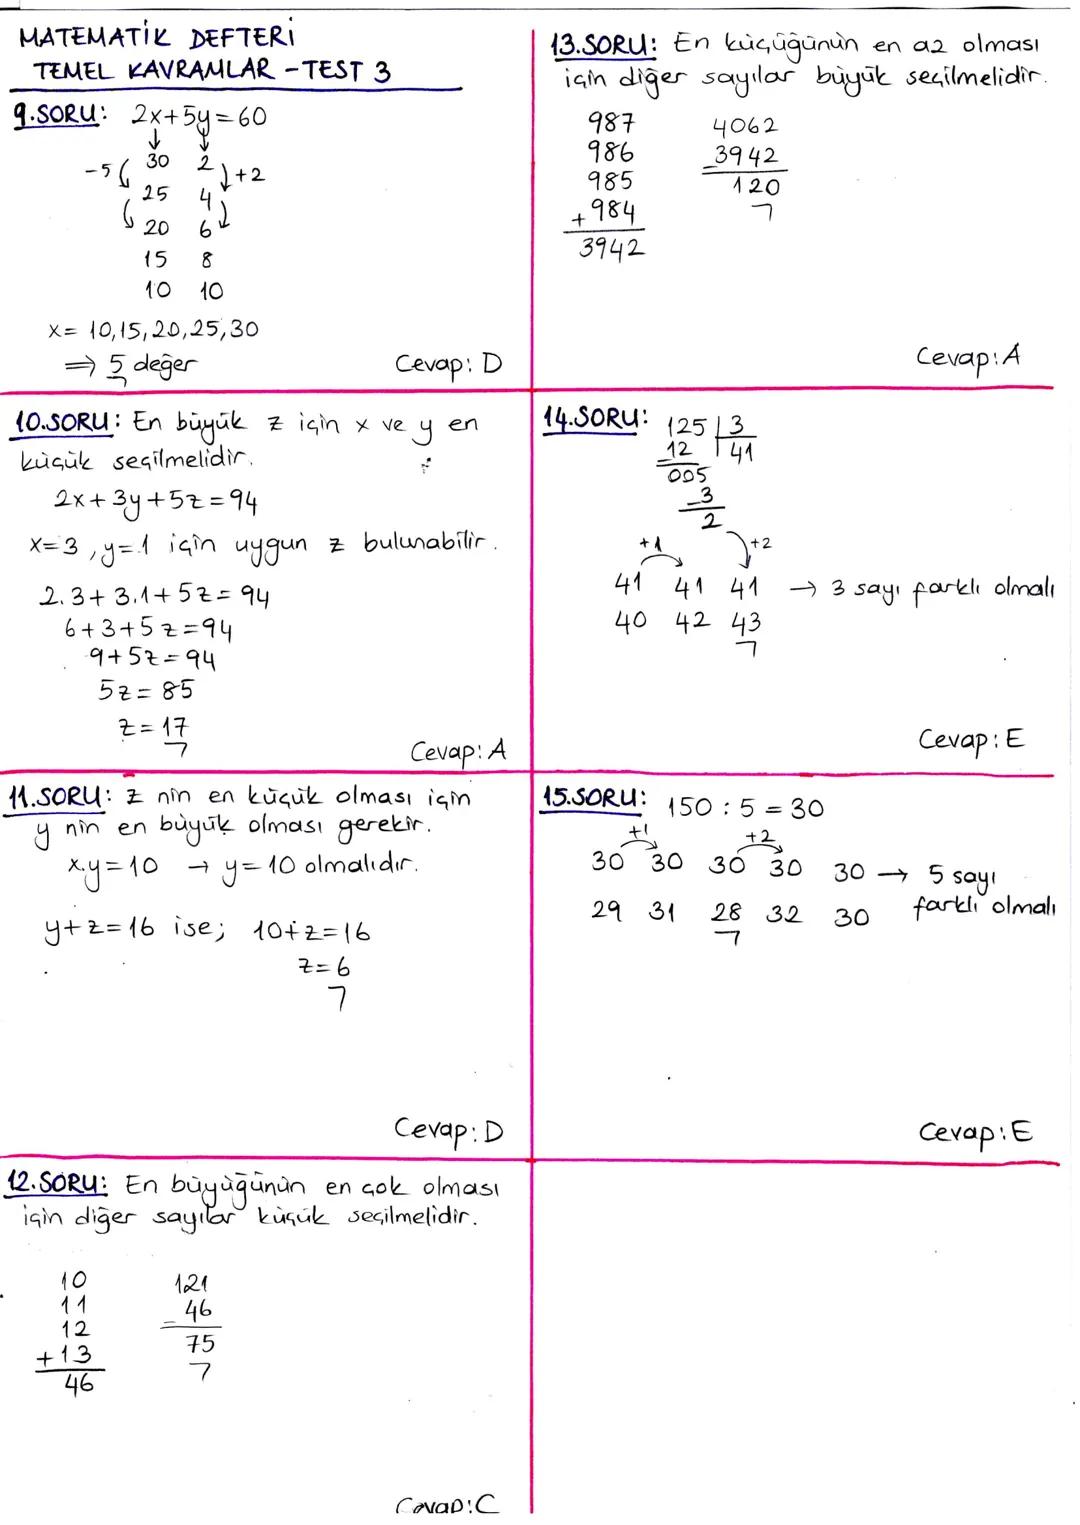 MATEMATİK DEFTERİ
TEMEL KAVRAMLAR - TEST 3
9.SORU: 2x+5y=60
30 2
-5 +2
25 4
20 6
15 8
10 10
x= 10,15,20,25,30
⇒ 5 değer
Cevap: D
10.SORU: En büyük z için x ve y en
küçük seçilmelidir.
2x+3y+5z=94
x=3, y=1 için uygun z bulunabilir.
2.3+3.1+5z=94
6+3+5z=94
9+5z=94
5z=85
z=17
Cevap: A
11.SORU: z nin en küçük olması için
y nin en büyük olması gerekir.
x.y=10 → y=10 olmalıdır.
y+z=16 ise; 10+z=16
z=6
Cevap: D
12.SORU: En büyüğünün en çok olması
için diğer sayılar küçük seçilmelidir.
10 121
11 - 46
12 75
+13
46
Cevap: C
13.SORU: En küçüğünün en az olması
için diğer sayılar büyük seçilmelidir.
987 4062
986 -3942
985 120
+984
3942
Cevap: A
14.SORU: 125 | 3
-12 41
005
-3
2
+1 +2
41 41 41 → 3 sayı farklı olmalı
40 42 43
Cevap: E
15.SORU: 150 : 5 = 30
+1 +2
30 30 30 30 30 → 5 sayı
farklı olmalı
29 31 28 32 30
Cevap: E